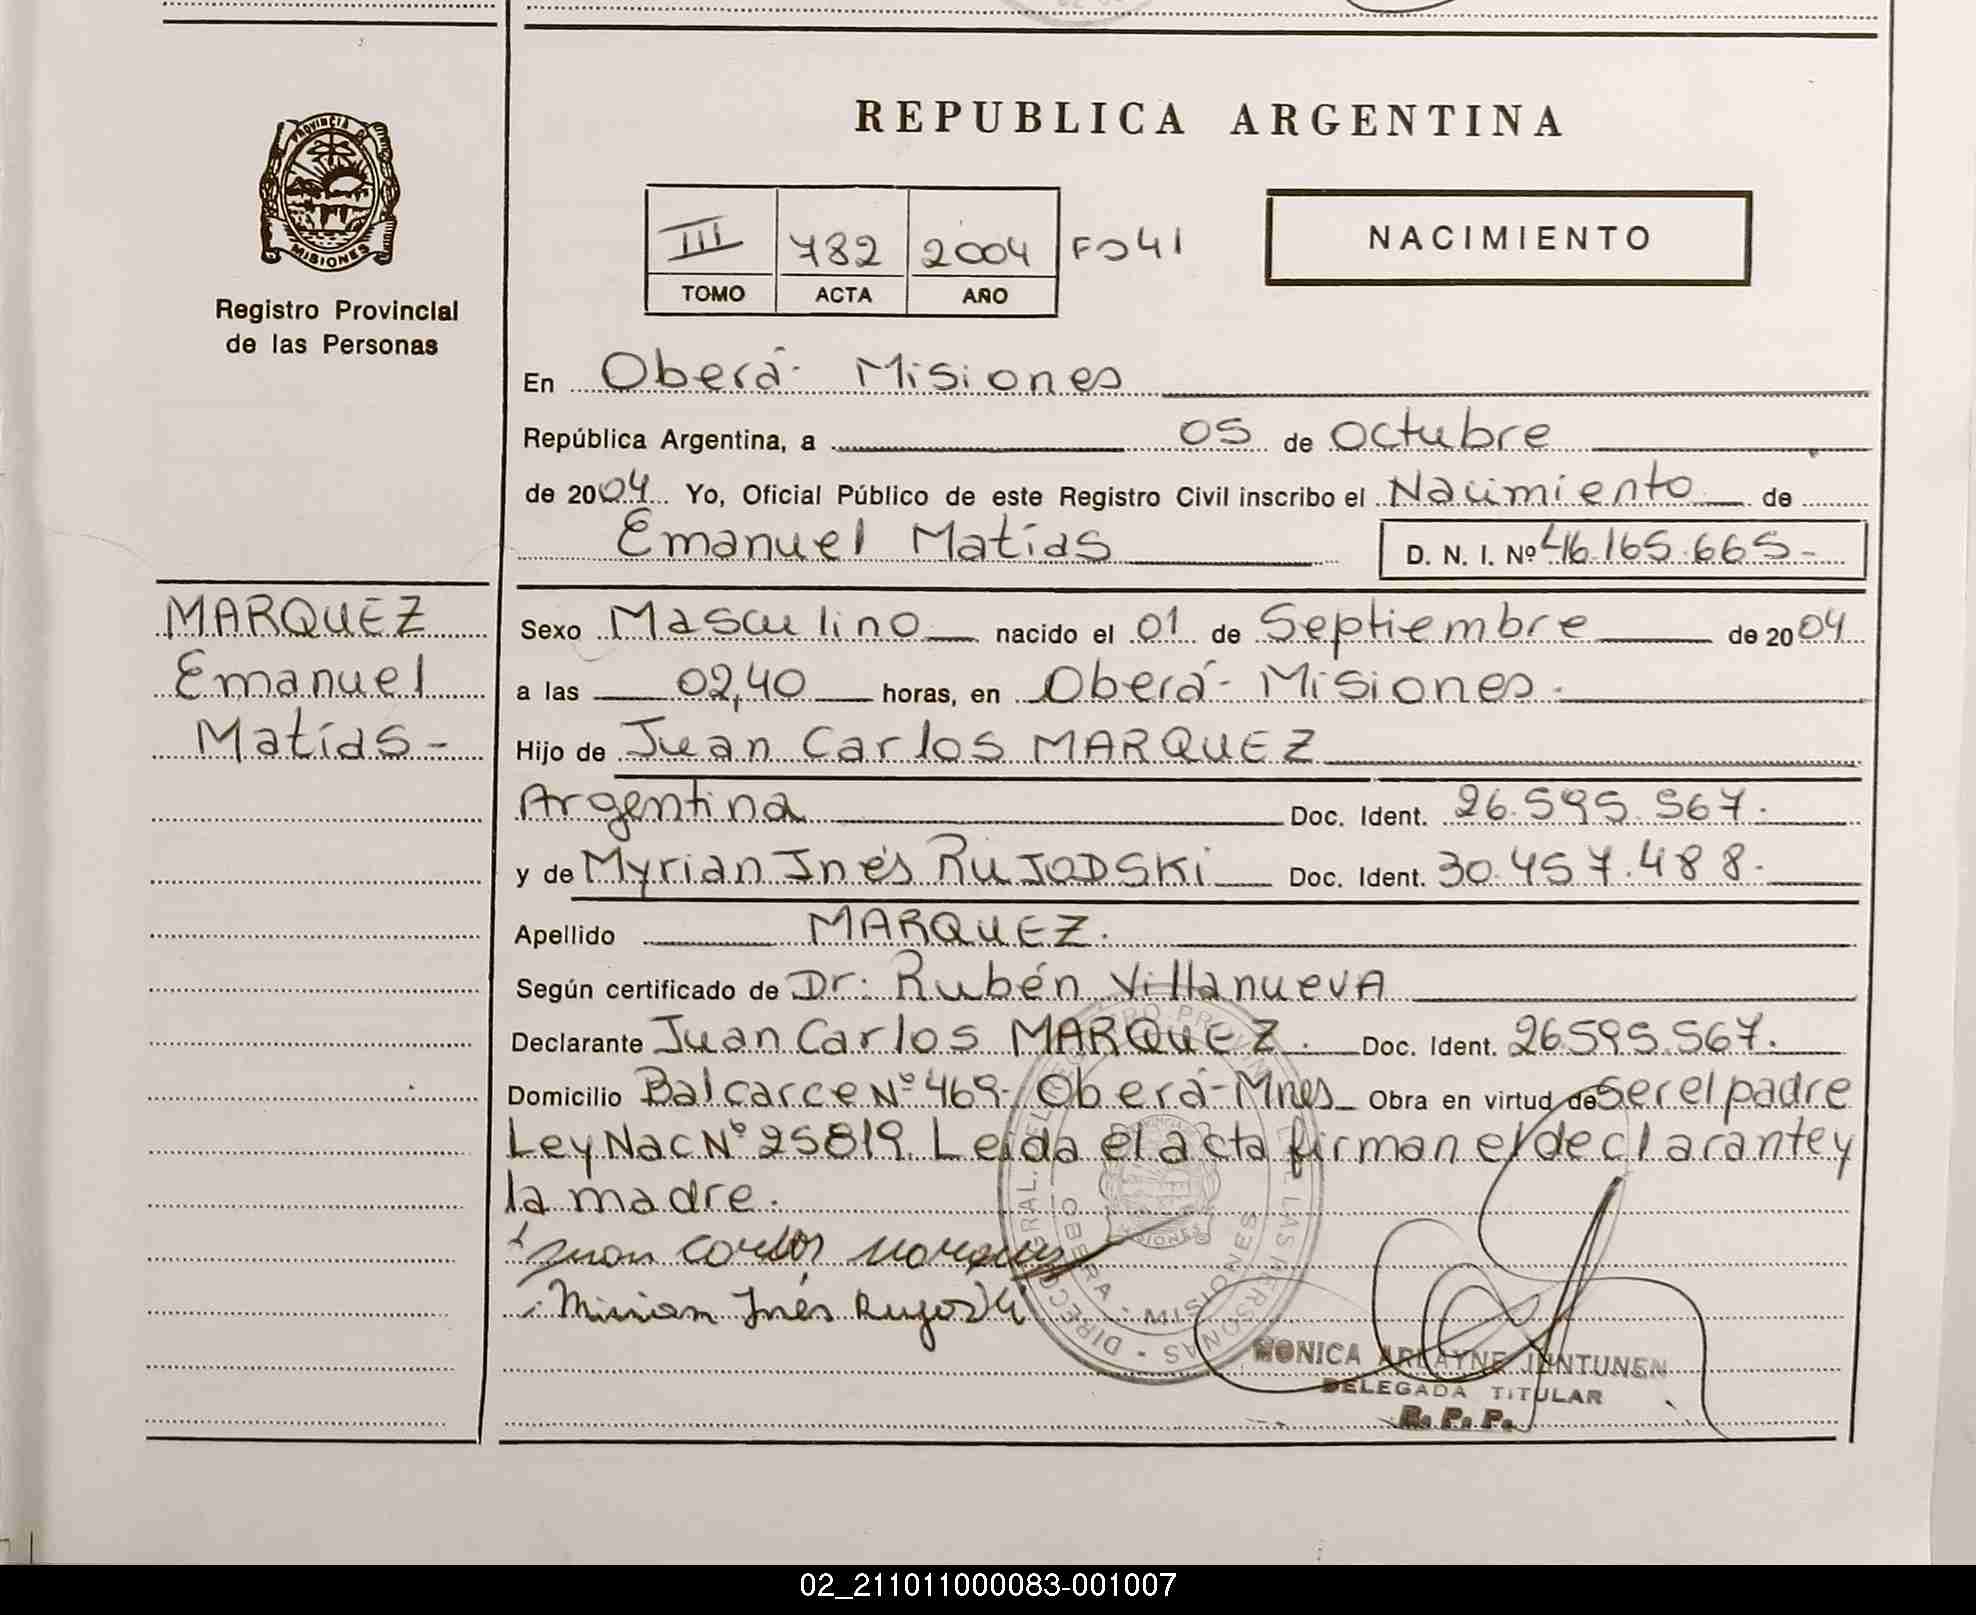 PROVINCIA DE
MISIONES
Registro Provincial
de las Personas
REPUBLICA ARGENTINA
III 782 2004 Fo41
TOMO ACTA AÑO
NACIMIENTO
En Oberá - Misiones
República Argentina, a 05 de Octubre
de 2004 Yo, Oficial Público de este Registro Civil inscribo el Nacimiento de
Emanuel Matías D. N. I. Nº 46.165.665-
MARQUEZ
Emanuel
Matías-
Sexo Masculino nacido el 01 de Septiembre de 2004
a las 02,40 horas, en Oberá - Misiones.
Hijo de Juan Carlos MARQUEZ
Argentina Doc. Ident. 26.595.567.
y de Myrian Inés RUJODSKi Doc. Ident. 30.457.488.
Apellido MARQUEZ.
Según certificado de Dr: Rubén VillanuevA
Declarante Juan Carlos MARQUEZ. Doc. Ident. 26595.567.
Domicilio Balcarce Nº 469- Oberá-Mnes Obra en virtud de Ser el padre
Ley Nac Nº 25819. Leída el acta firman el declarante y
la madre.
Juan Carlos Marquez
Miriam Inés Rujoski
OBERA - MISIONES
MONICA ARLAYNE JUNTUNEN
DELEGADA TITULAR
R. P. P.
02_211011000083-001007